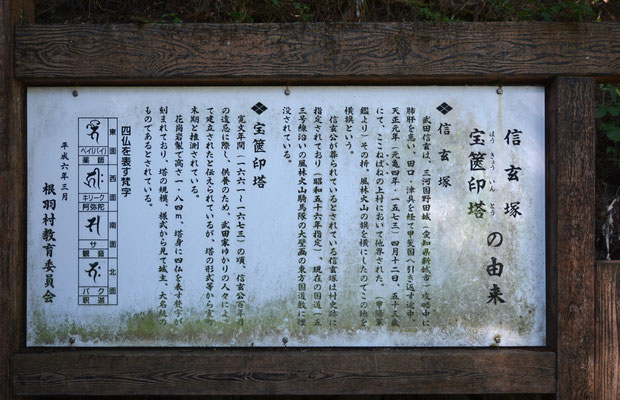 信玄塚
宝篋印塔
ほうきょういんとう
の由来
◆信玄塚
武田信玄は、三河国野田城（愛知県新城市）攻略中に
肺肝を患い、田口、津具を経て甲斐国へ引き返す途中、
天正元年（元亀四年・一五七三）四月十二日、五十三歳
にて、ここねばねの上村において他界された。（甲陽軍
鑑より）その折、風林火山の旗を横にしたのでこの地を
横旗という。
信玄公が葬られているとされている信玄塚は村史跡に
指定されており（昭和五十六年指定）、現在の国道一五
三号線沿いの風林火山騎馬隊の大壁画の東方国道敷に埋
没されている。
◆宝篋印塔
寛文年間（一六六一～一六七三）の頃、信玄公百年目
の遠忌に際し、供養のため、武田家ゆかりの人々によっ
て建立されたと伝えられているが、塔の形式等から室町
末期と推測されている。
花崗岩製で高さ一・八四ｍ、塔身に四仏を表す梵字が
刻まれており、塔の規模、様式から見て城主、大名級の
ものであるとされている。
四仏を表す梵字
東面 西面 南面 北面
ベイ(バイ) キリーク サ バク
薬師 阿弥陀 観音 釈迦
平成六年三月
根羽村教育委員会